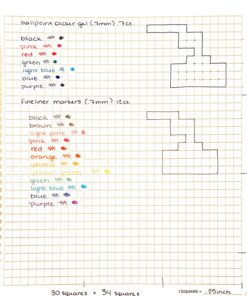 ballpoint clicker gel (.7mm) 7ct.
black
pink
red
green
light blue
blue
purple
fineliner markers (.7mm) 12ct.
black
brown
light pink
pink
red
orange
yellow
yellow green
green
light blue
blue
purple
30 squares × 34 squares
1 SQUARE = .25inch